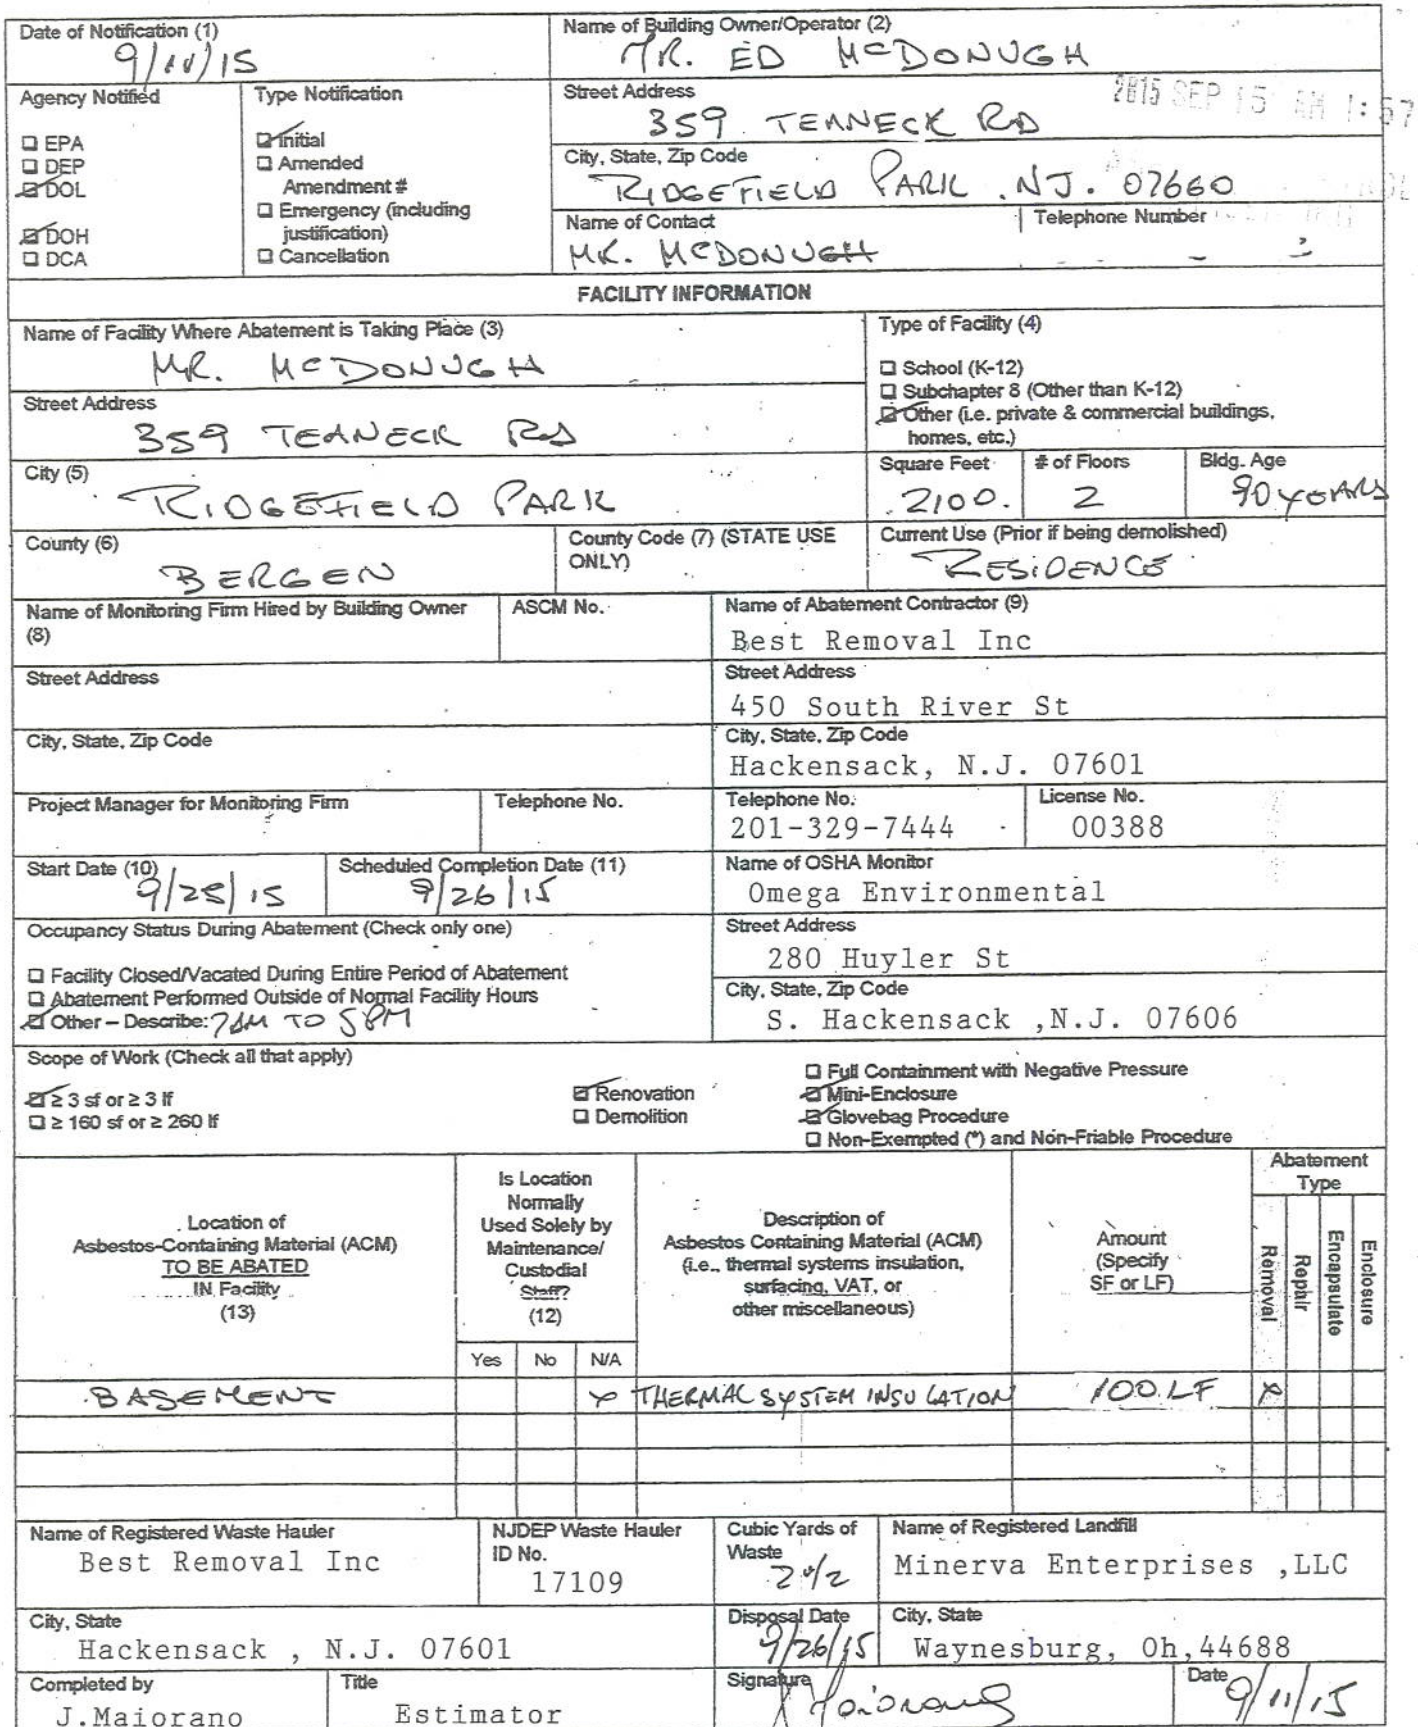 Date of Notification (1)
9/11/15
Name of Building Owner/Operator (2)
MR. ED McDONUGH
Agency Notified
☐ EPA
☐ DEP
☑ DOL
☑ DOH
☐ DCA
Type Notification
☑ Initial
☐ Amended
Amendment #
☐ Emergency (including
justification)
☐ Cancellation
Street Address
359 TEANECK RD
2015 SEP 15 AM 1:57
City, State, Zip Code
RIDGEFIELD PARK, NJ. 07660
Name of Contact
MR. McDONUGH
Telephone Number
FACILITY INFORMATION
Name of Facility Where Abatement is Taking Place (3)
MR. McDONUGH
Type of Facility (4)
☐ School (K-12)
☐ Subchapter 8 (Other than K-12)
☑ Other (i.e. private & commercial buildings,
homes, etc.)
Street Address
359 TEANECK RD
City (5)
RIDGEFIELD PARK
Square Feet
2100.
# of Floors
2
Bldg. Age
90 YEARS
County (6)
BERGEN
County Code (7) (STATE USE
ONLY)
Current Use (Prior if being demolished)
RESIDENCE
Name of Monitoring Firm Hired by Building Owner
(8)
ASCM No.
Name of Abatement Contractor (9)
Best Removal Inc
Street Address
Street Address
450 South River St
City, State, Zip Code
City, State, Zip Code
Hackensack, N.J. 07601
Project Manager for Monitoring Firm
Telephone No.
Telephone No.
201-329-7444
License No.
00388
Start Date (10)
9/25/15
Scheduled Completion Date (11)
9/26/15
Name of OSHA Monitor
Omega Environmental
Occupancy Status During Abatement (Check only one)
☐ Facility Closed/Vacated During Entire Period of Abatement
☐ Abatement Performed Outside of Normal Facility Hours
☑ Other – Describe: 7AM TO 5PM
Street Address
280 Huyler St
City, State, Zip Code
S. Hackensack ,N.J. 07606
Scope of Work (Check all that apply)
☑ ≥ 3 sf or ≥ 3 lf
☐ ≥ 160 sf or ≥ 260 lf
☑ Renovation
☐ Demolition
☐ Full Containment with Negative Pressure
☑ Mini-Enclosure
☑ Glovebag Procedure
☐ Non-Exempted (*) and Non-Friable Procedure
Location of
Asbestos-Containing Material (ACM)
TO BE ABATED
IN Facility
(13)
Is Location
Normally
Used Solely by
Maintenance/
Custodial
Staff?
(12)
Yes No N/A
Description of
Asbestos Containing Material (ACM)
(i.e., thermal systems insulation,
surfacing, VAT, or
other miscellaneous)
Amount
(Specify
SF or LF)
Abatement
Type
Removal
Repair
Encapsulate
Enclosure
BASEMENT X THERMAL SYSTEM INSULATION 100 LF X
Name of Registered Waste Hauler
Best Removal Inc
NJDEP Waste Hauler
ID No.
17109
Cubic Yards of
Waste
2 1/2
Name of Registered Landfill
Minerva Enterprises ,LLC
City, State
Hackensack , N.J. 07601
Disposal Date
9/26/15
City, State
Waynesburg, Oh,44688
Completed by
J.Maiorano
Title
Estimator
Signature
J Maiorano
Date
9/11/15